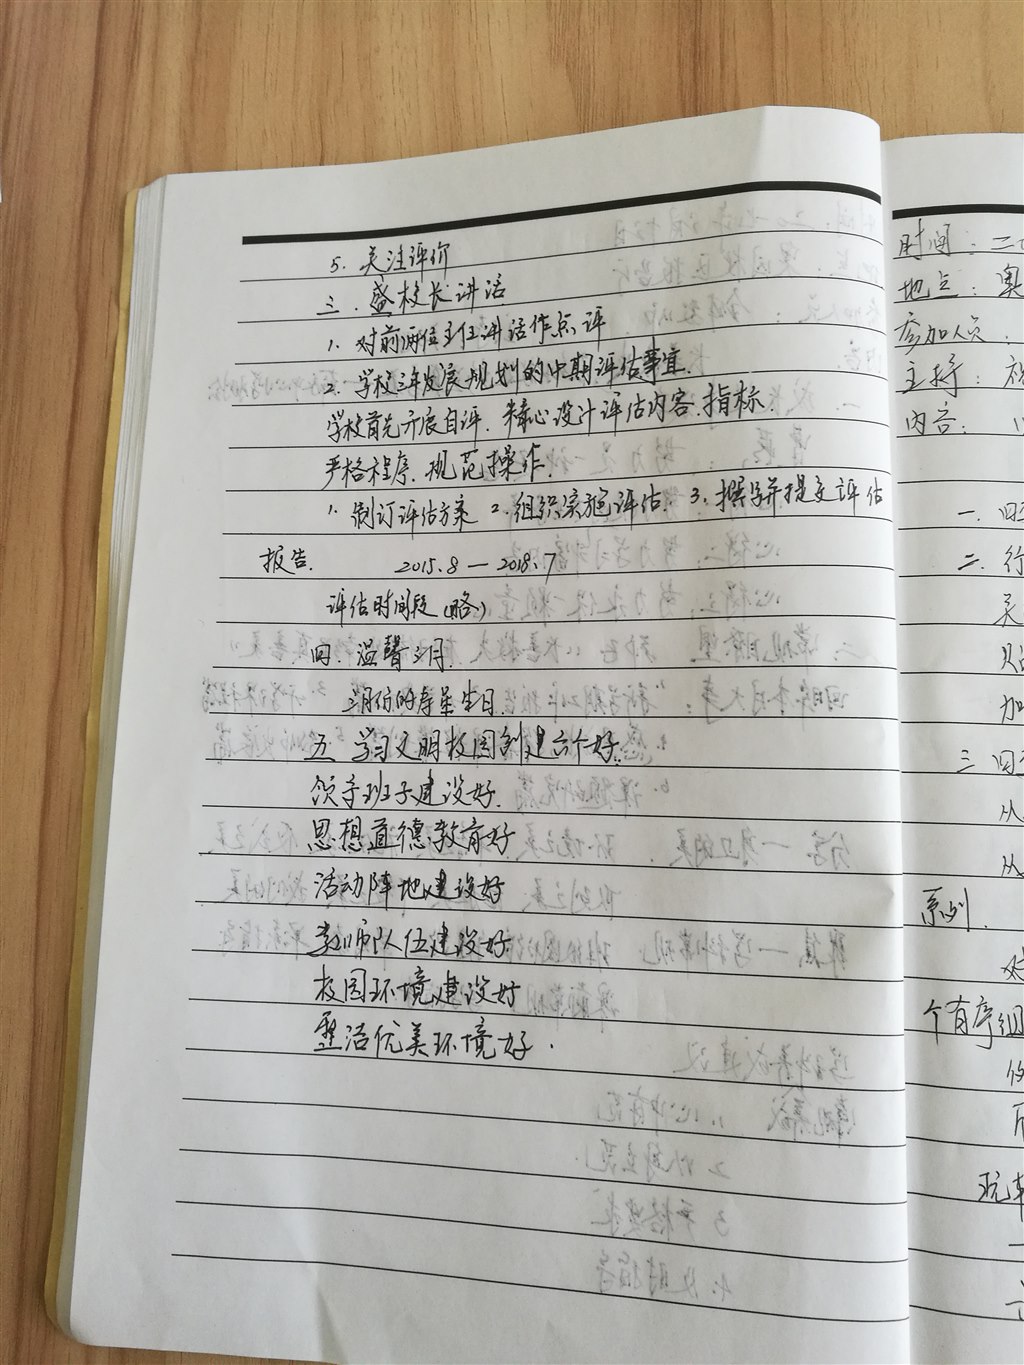 5. 关注评价
三. 盛校长讲话
1. 对前两位主任讲话作点评
2. 学校三年发展规划的中期评估事宜.
学校首先开展自评. 精心设计评估内容. 指标.
严格程序. 规范操作.
1. 制订评估方案 2. 组织实施评估. 3. 撰写并提交评估
报告. 2015.8 — 2018.7
评估时间段 (略)
四. 温馨三月.
三月份的寿星生日.
五. 学习文明校园创建六个好.
领导班子建设好.
思想道德教育好
活动阵地建设好
教师队伍建设好.
校园环境建设好
整洁优美环境好.
时间: 二
地点: 奥
参加人员:
主持:
内容:
一. 四
二. 行
三 四
从
从
系列.
个有序组